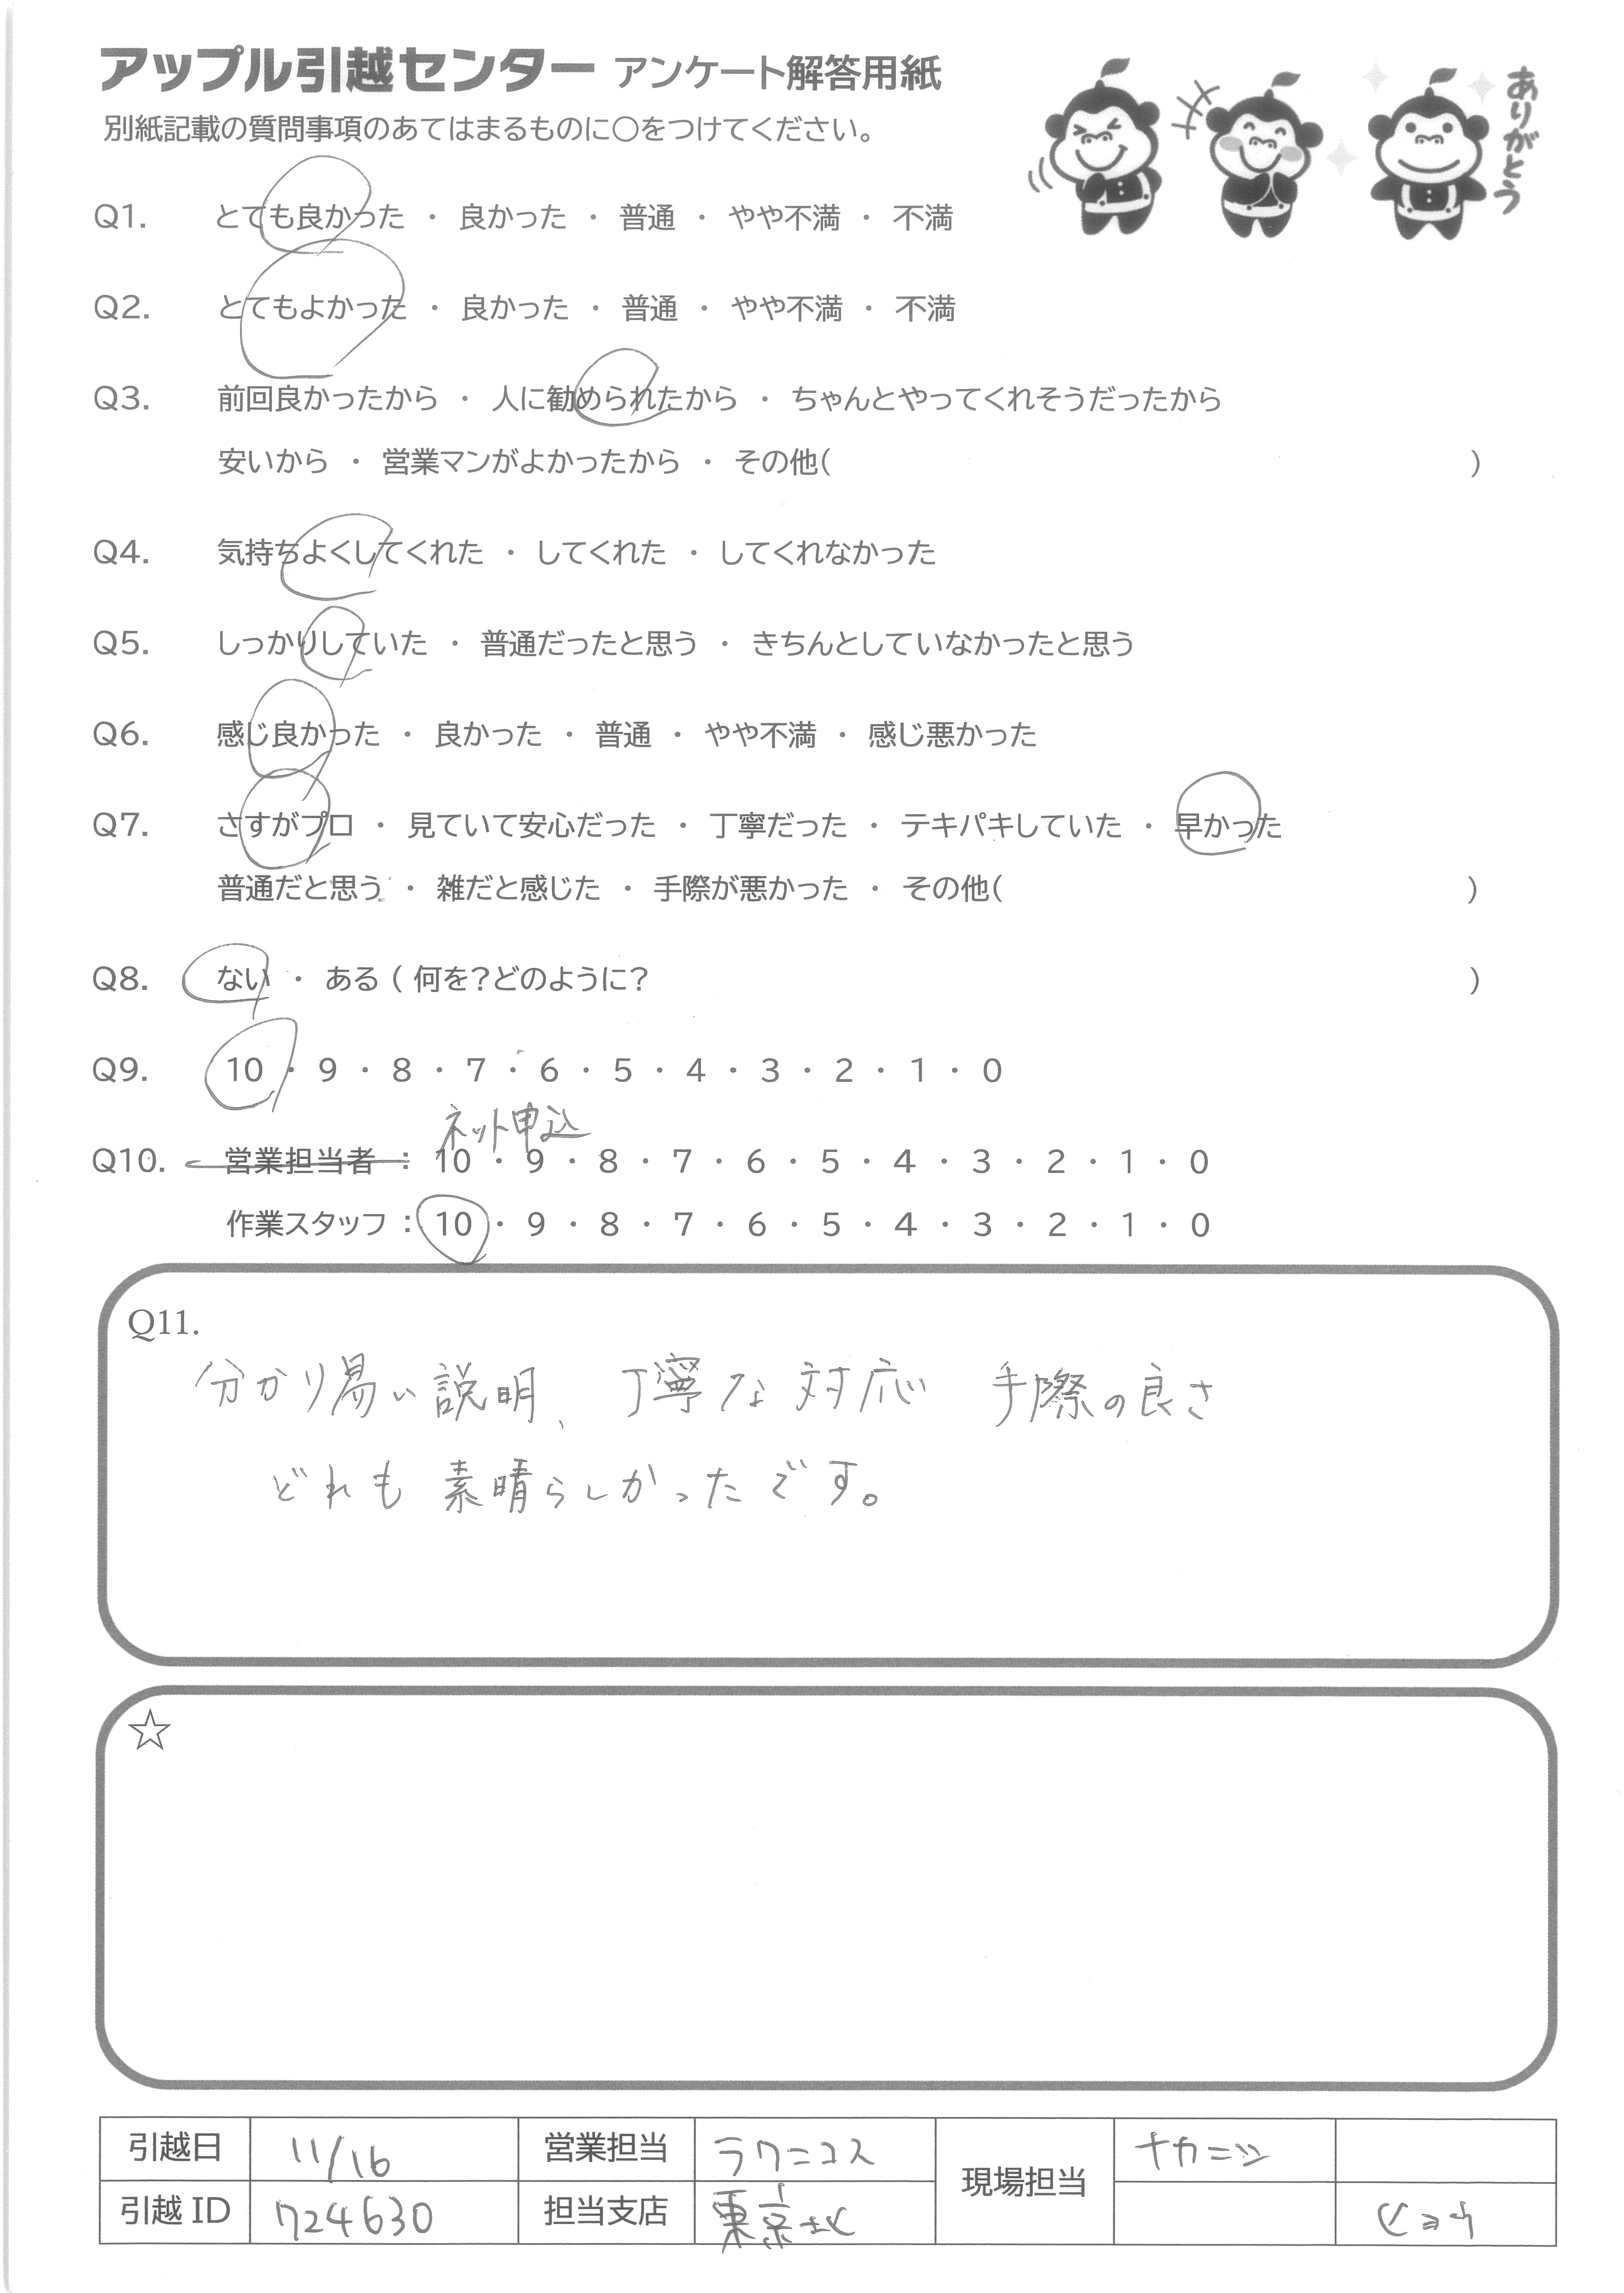 アップル引越センター アンケート解答用紙
ありがとう
別紙記載の質問事項のあてはまるものに○をつけてください。
Q1. とても良かった ・ 良かった ・ 普通 ・ やや不満 ・ 不満
Q2. とてもよかった ・ 良かった ・ 普通 ・ やや不満 ・ 不満
Q3. 前回良かったから ・ 人に勧められたから ・ ちゃんとやってくれそうだったから
安いから ・ 営業マンがよかったから ・ その他( )
Q4. 気持ちよくしてくれた ・ してくれた ・ してくれなかった
Q5. しっかりしていた ・ 普通だったと思う ・ きちんとしていなかったと思う
Q6. 感じ良かった ・ 良かった ・ 普通 ・ やや不満 ・ 感じ悪かった
Q7. さすがプロ ・ 見ていて安心だった ・ 丁寧だった ・ テキパキしていた ・ 早かった
普通だと思う ・ 雑だと感じた ・ 手際が悪かった ・ その他( )
Q8. ない ・ ある ( 何を?どのように? )
Q9. 10 ・ 9 ・ 8 ・ 7 ・ 6 ・ 5 ・ 4 ・ 3 ・ 2 ・ 1 ・ 0
ネット申込
Q10. 営業担当者 : 10 ・ 9 ・ 8 ・ 7 ・ 6 ・ 5 ・ 4 ・ 3 ・ 2 ・ 1 ・ 0
作業スタッフ : 10 ・ 9 ・ 8 ・ 7 ・ 6 ・ 5 ・ 4 ・ 3 ・ 2 ・ 1 ・ 0
Q11.
分かり易い説明、丁寧な対応 手際の良さ
どれも素晴らしかったです。
☆
引越日 11/16 営業担当 ラクニコス 現場担当 ナカニシ
引越ID 724630 担当支店 東京北